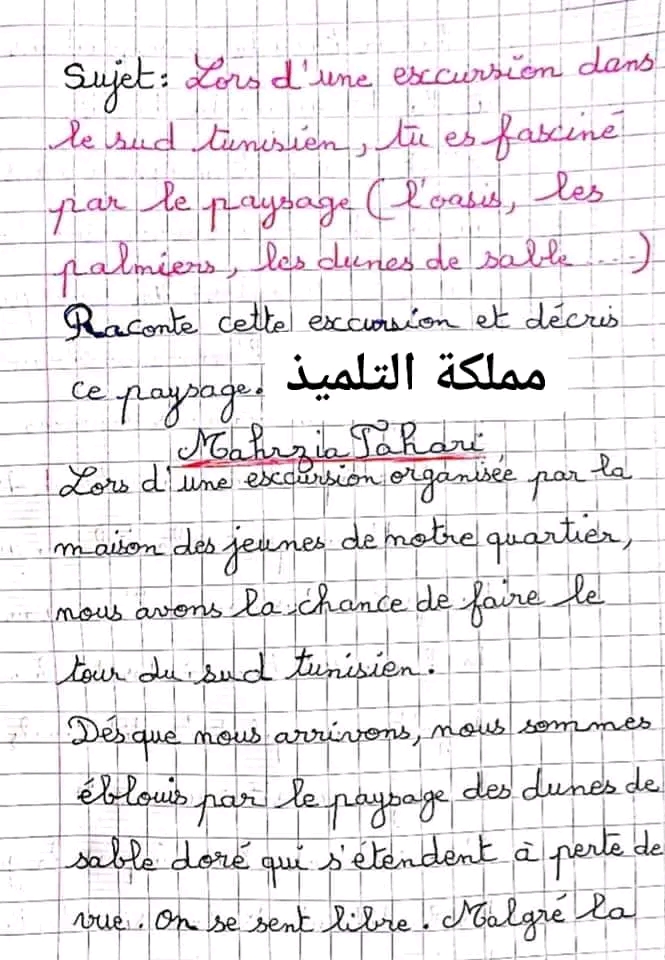 Sujet: Lors d'une excursion dans
le sud tunisien, tu es fasciné
par le paysage (l'oasis, les
palmiers, les dunes de sable ....)
Raconte cette excursion et décris
ce paysage. مملكة التلميذ
Mahrzia Tahari
Lors d'une excursion organisée par la
maison des jeunes de notre quartier,
nous avons la chance de faire le
tour du sud tunisien.
Dés que nous arrivons, nous sommes
éblouis par le paysage des dunes de
sable doré qui s'étendent à perte de
vue. On se sent libre. Malgré la